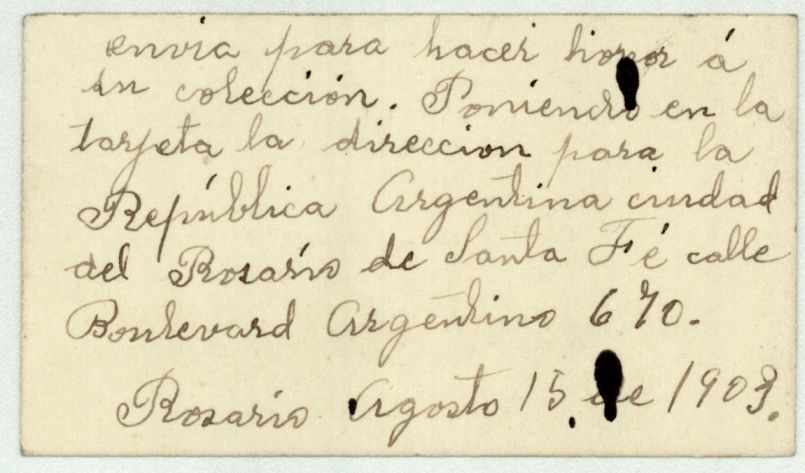 envia para hacer honor á
su colección. Poniendo en la
tarjeta la direccion para la
República Argentina ciudad
del Rosario de Santa Fé calle
Boulevard Argentino 670.
Rosario Agosto 15 de 1903.